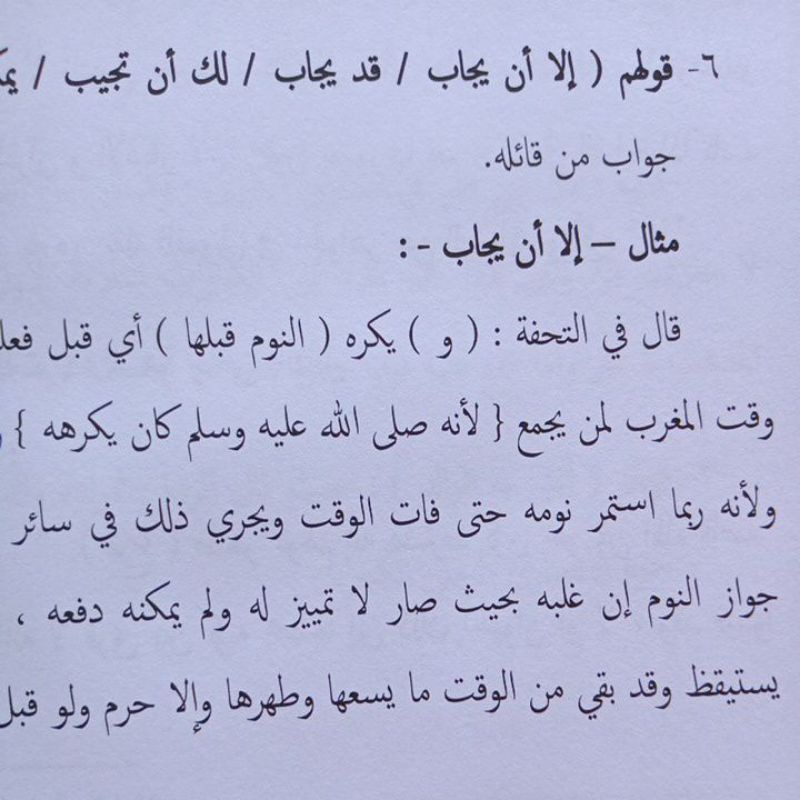 ٦- قولهم ( إلا أن يجاب / قد يجاب / لك أن تجيب /
جواب من قائله.
مثال – إلا أن يجاب - :
قال في التحفة : ( و ) يكره ( النوم قبلها ) أي قبل
وقت المغرب لمن يجمع { لأنه صلى الله عليه وسلم كان يكرهه }
ولأنه ربما استمر نومه حتى فات الوقت ويجري ذلك في سائر
جواز النوم إن غلبه بحيث صار لا تمييز له ولم يمكنه دفعه ،
يستيقظ وقد بقي من الوقت ما يسعها وطهرها وإلا حرم ولو قبل